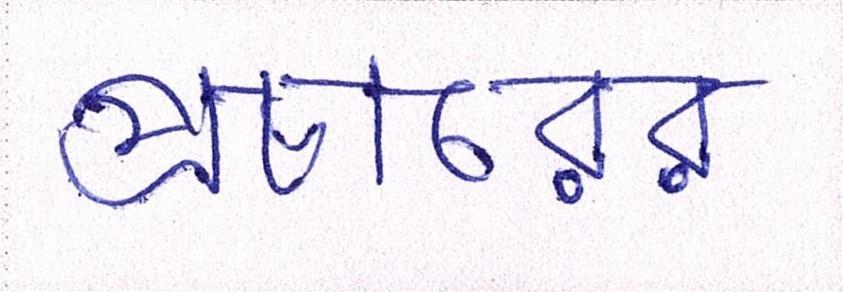 প্রচারের